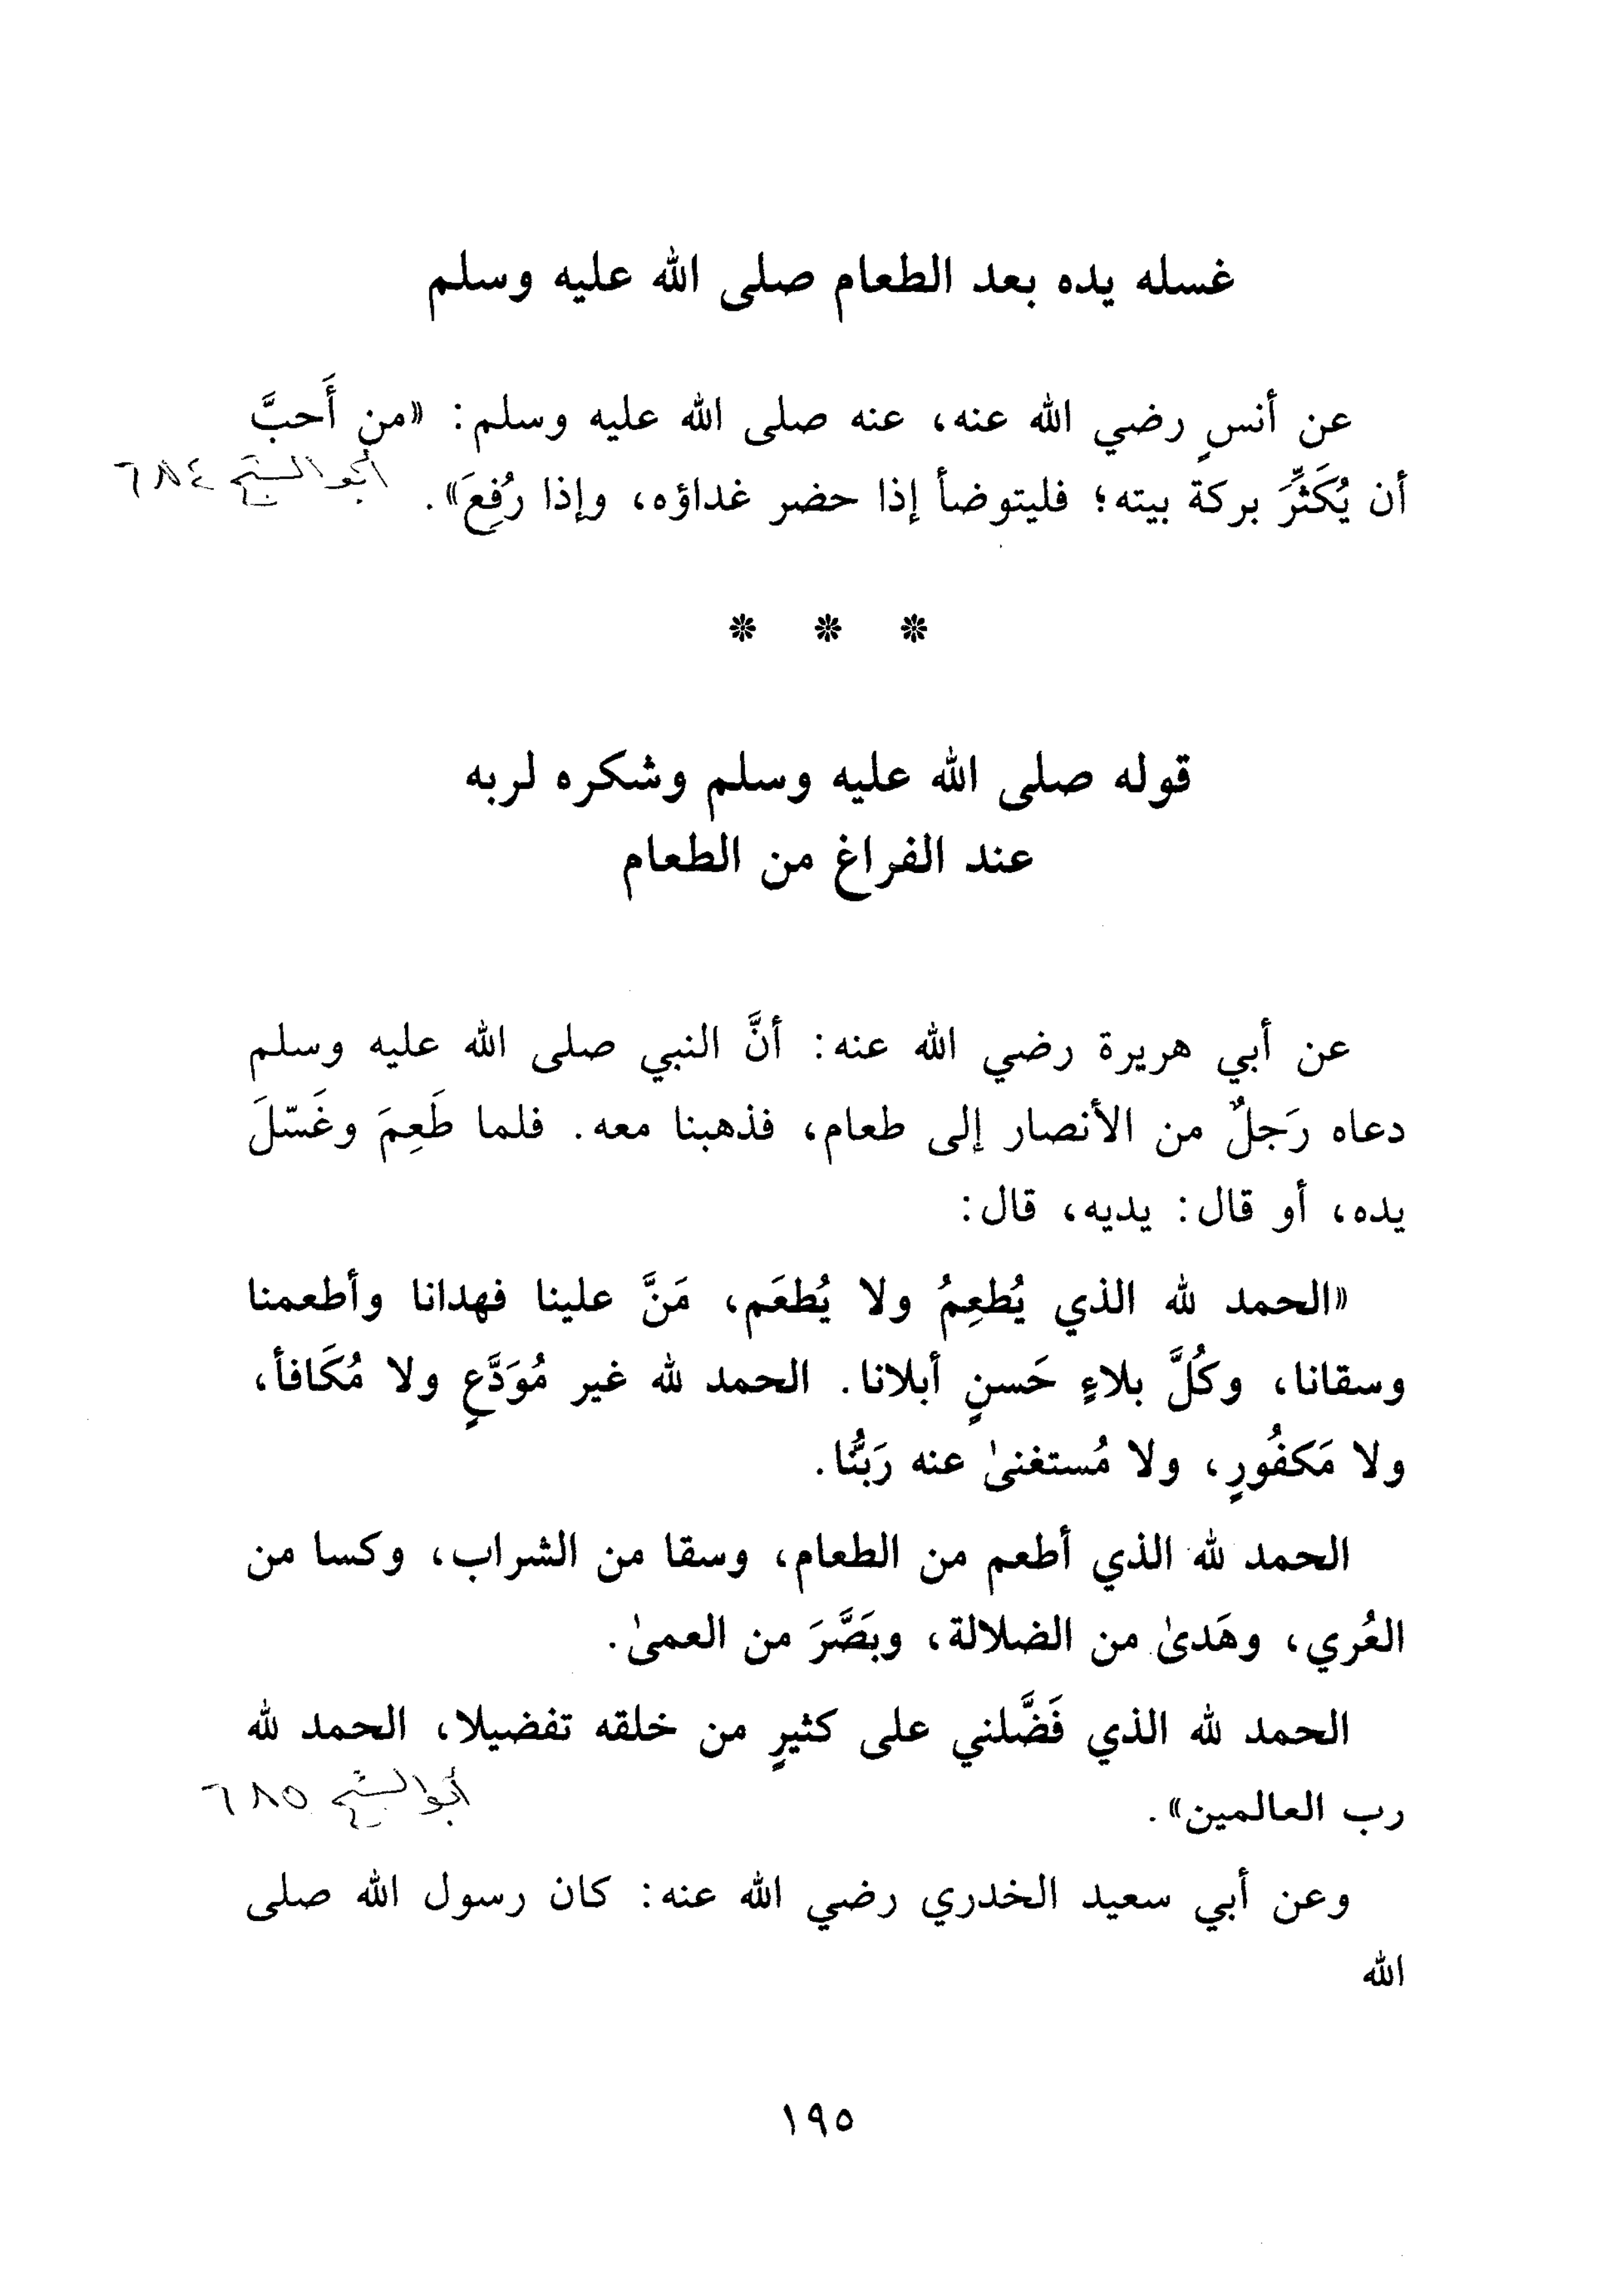 غسله يده بعد الطعام صلى الله عليه وسلم
عن أنسٍ رضي الله عنه، عنه صلى الله عليه وسلم: «من أَحبَّ
أن يُكَثِّرَ بركة بيته؛ فليتوضأ إذا حضر غداؤه، وإذا رُفِعَ».
أبو الشيخ ٦٨٤
* * *
قوله صلى الله عليه وسلم وشكره لربه
عند الفراغ من الطعام
عن أبي هريرة رضي الله عنه: أنَّ النبي صلى الله عليه وسلم
دعاه رَجلٌ من الأنصار إلى طعام، فذهبنا معه. فلما طَعِمَ وغَسّلَ
يده، أو قال: يديه، قال:
«الحمد لله الذي يُطعِمُ ولا يُطعَم، مَنَّ علينا فهدانا وأطعمنا
وسقانا، وكُلَّ بلاءٍ حَسنٍ أبلانا. الحمد لله غير مُوَدَّعٍ ولا مُكَافأ،
ولا مَكفُورٍ، ولا مُستغنىٰ عنه رَبُّنا.
الحمد لله الذي أطعم من الطعام، وسقا من الشراب، وكسا من
العُري، وهَدىٰ من الضلالة، وبَصَّرَ من العمىٰ.
الحمد لله الذي فَضَّلني على كثيرٍ من خلقه تفضيلا، الحمد لله
رب العالمين».
أبو الشيخ ٦٨٥
وعن أبي سعيد الخدري رضي الله عنه: كان رسول الله صلى
الله
١٩٥